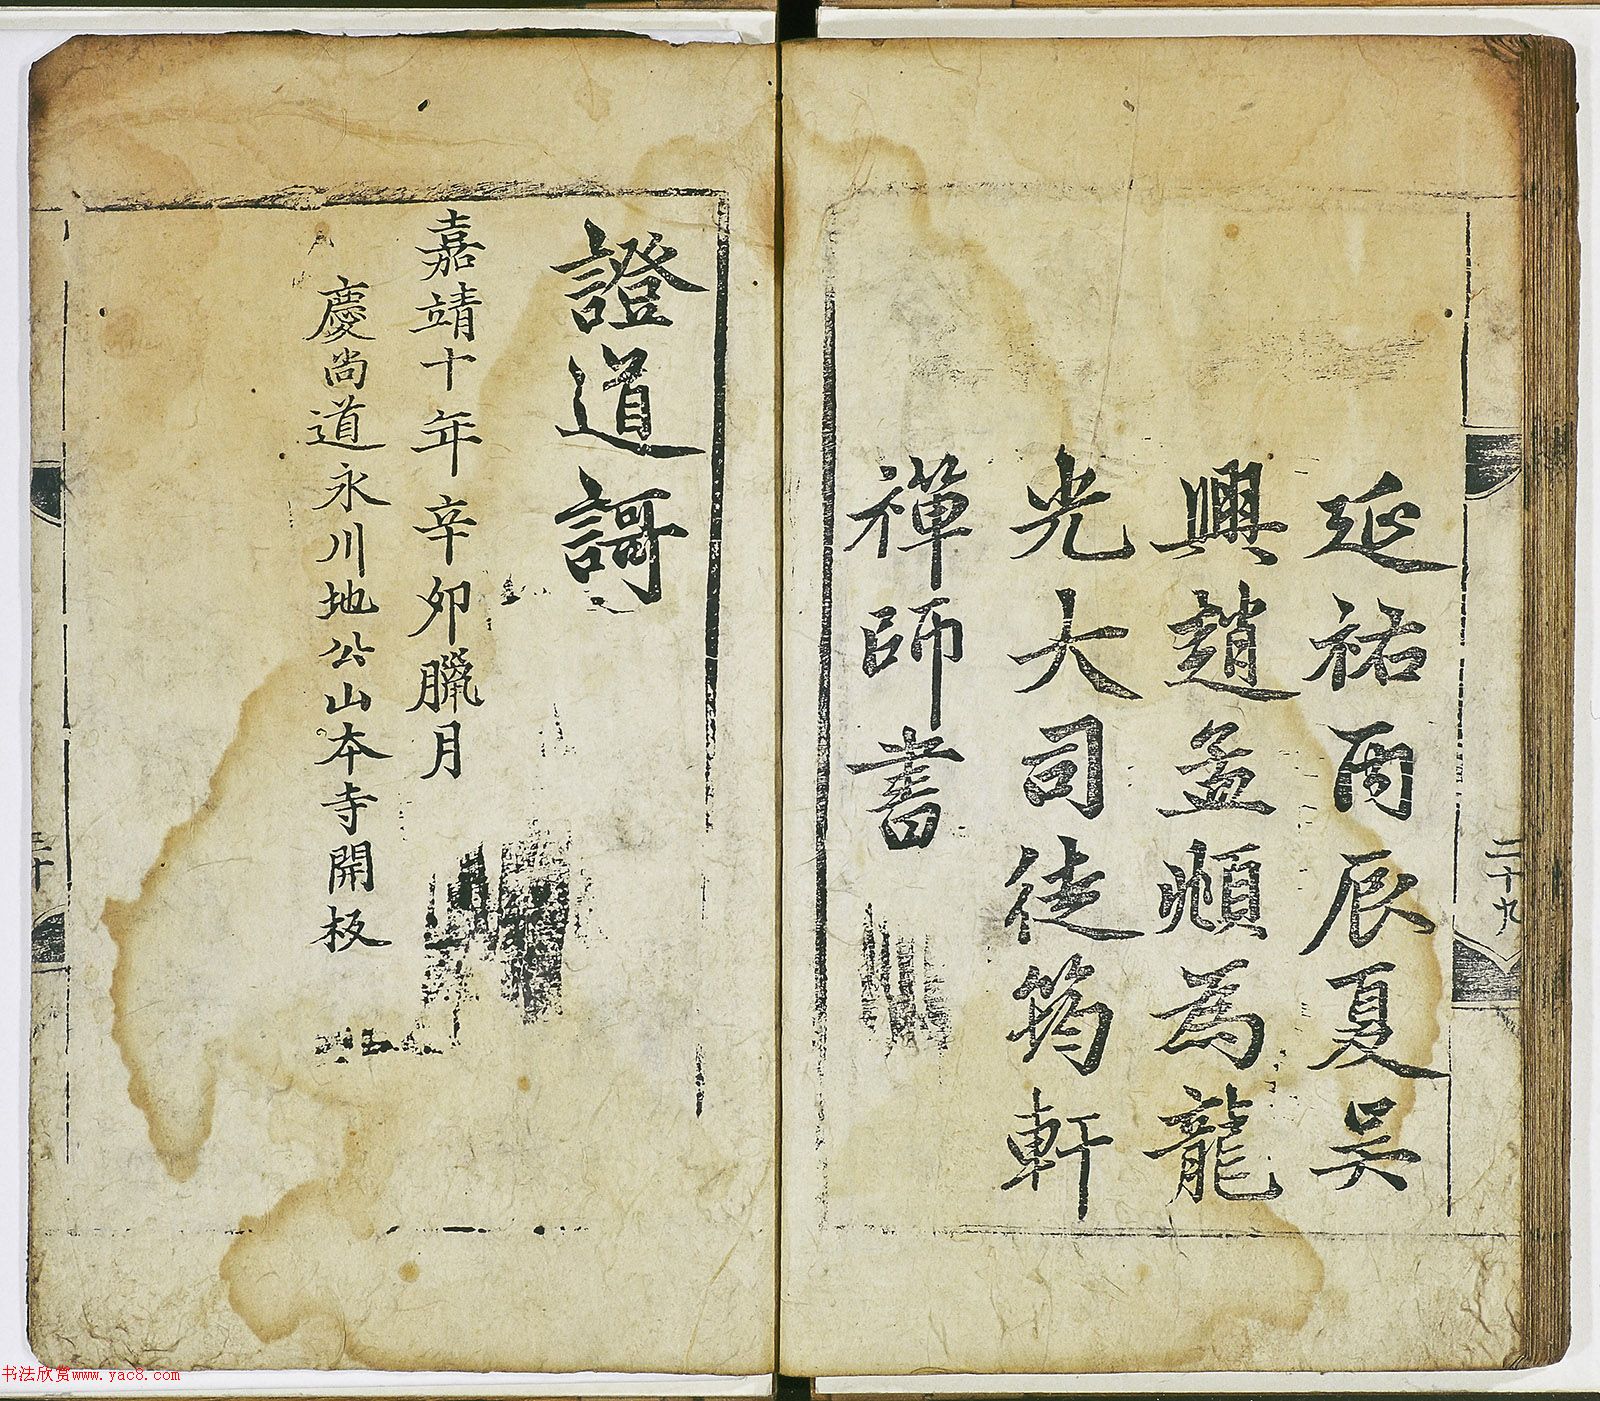 延祐丙辰夏吴
興趙孟頫為龍
光大司徒筠軒
禪師書
二十九
證道謌
嘉靖十年辛卯臘月
慶尚道永川地公山本寺開板
三十
书法欣赏www.yac8.com